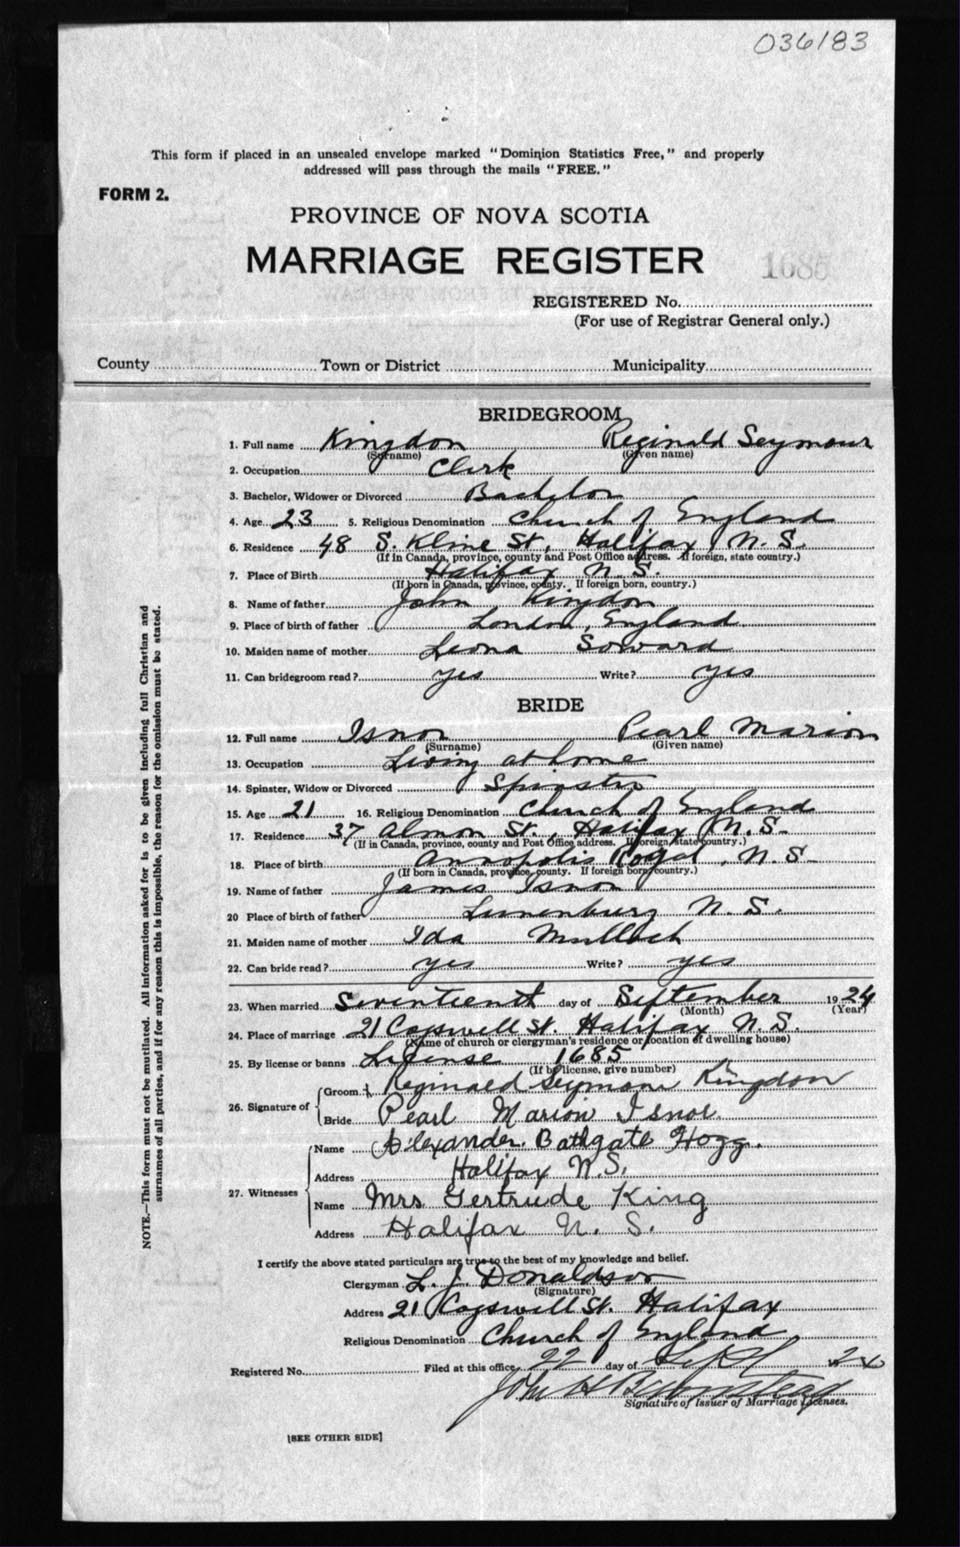 036183
This form if placed in an unsealed envelope marked "Dominion Statistics Free," and properly
addressed will pass through the mails "FREE."
FORM 2.
PROVINCE OF NOVA SCOTIA
MARRIAGE REGISTER 1685
REGISTERED No.
(For use of Registrar General only.)
County Town or District Municipality
BRIDEGROOM
1. Full name Kingdon Reginald Seymour
(Surname) (Given name)
2. Occupation Clerk
3. Bachelor, Widower or Divorced Bachelor
4. Age 23 5. Religious Denomination Church of England
6. Residence 48 S. Kline St, Halifax, N.S.
(If in Canada, province, county and Post Office address. If foreign, state country.)
7. Place of Birth Halifax N.S.
(If born in Canada, province, county. If foreign born, country.)
8. Name of father John Kingdon
9. Place of birth of father London, England
10. Maiden name of mother Leona Soward
11. Can bridegroom read? yes Write? yes
BRIDE
12. Full name Isnor Pearl Marion
(Surname) (Given name)
13. Occupation Living at home
14. Spinster, Widow or Divorced Spinster
15. Age 21 16. Religious Denomination Church of England
17. Residence 37 Almon St., Halifax N.S.
(If in Canada, province, county and Post Office address. If foreign, state country.)
18. Place of birth Annapolis Royal, N.S.
(If born in Canada, province, county. If foreign born, country.)
19. Name of father James Isnor
20 Place of birth of father Lunenburg N.S.
21. Maiden name of mother Ida Mullock
22. Can bride read? yes Write? yes
23. When married Seventeenth day of September 1924
(Month) (Year)
24. Place of marriage 21 Cogswell St. Halifax N.S.
(Name of church or clergyman's residence or location of dwelling house)
25. By license or banns License 1685
(If by license, give number)
26. Signature of Groom Reginald Seymour Kingdon
Bride Pearl Marion Isnor
27. Witnesses Name Alexander Bathgate Hogg.
Address Halifax N.S.
Name Mrs. Gertrude King
Address Halifax N.S.
I certify the above stated particulars are true to the best of my knowledge and belief.
Clergyman L. J. Donaldson
(Signature)
Address 21 Cogswell St. Halifax
Religious Denomination Church of England
Registered No. Filed at this office 22 day of Sept
John H
Signature of Issuer of Marriage Licenses.
[SEE OTHER SIDE]
NOTE.—This form must not be mutilated. All information asked for is to be given including full Christian and
surnames of all parties, and if for any reason this is impossible, the reason for the omission must be stated.